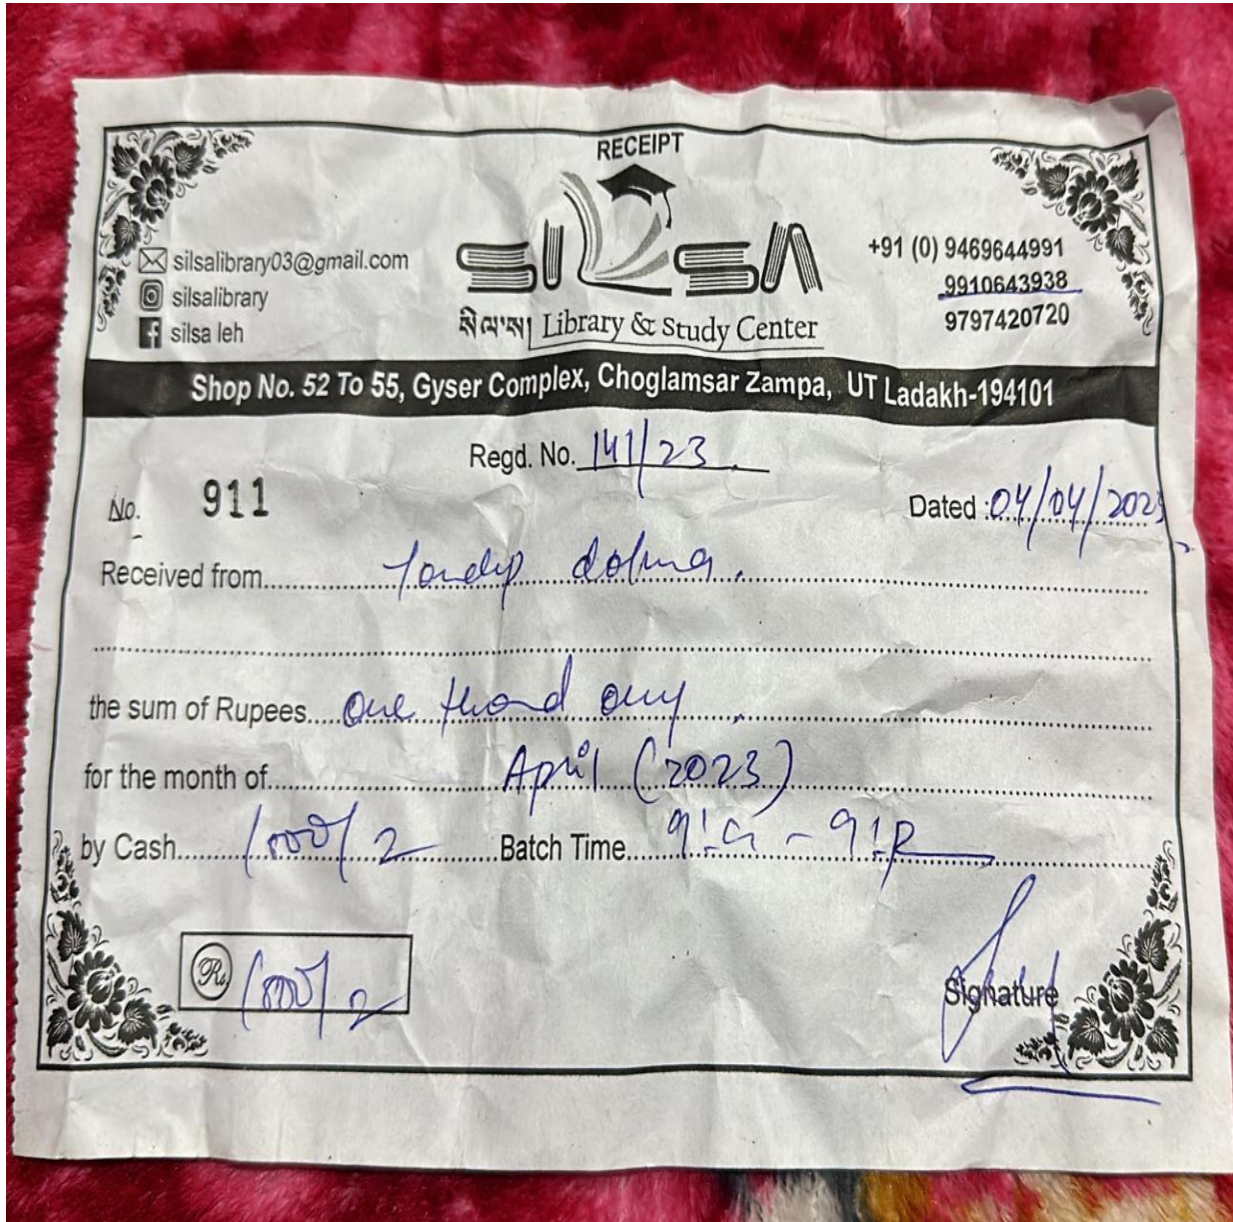 RECEIPT
SILSA
silsalibrary03@gmail.com
silsalibrary
silsa leh
སིལ་ས། Library & Study Center
+91 (0) 9469644991
9910643938
9797420720
Shop No. 52 To 55, Gyser Complex, Choglamsar Zampa, UT Ladakh-194101
Regd. No. 141/23
No. 911
Dated : 04/04/2023
Received from dolma.
the sum of Rupees One only
for the month of April (2023)
by Cash 1000/ Batch Time
Rs 1000/
Signature